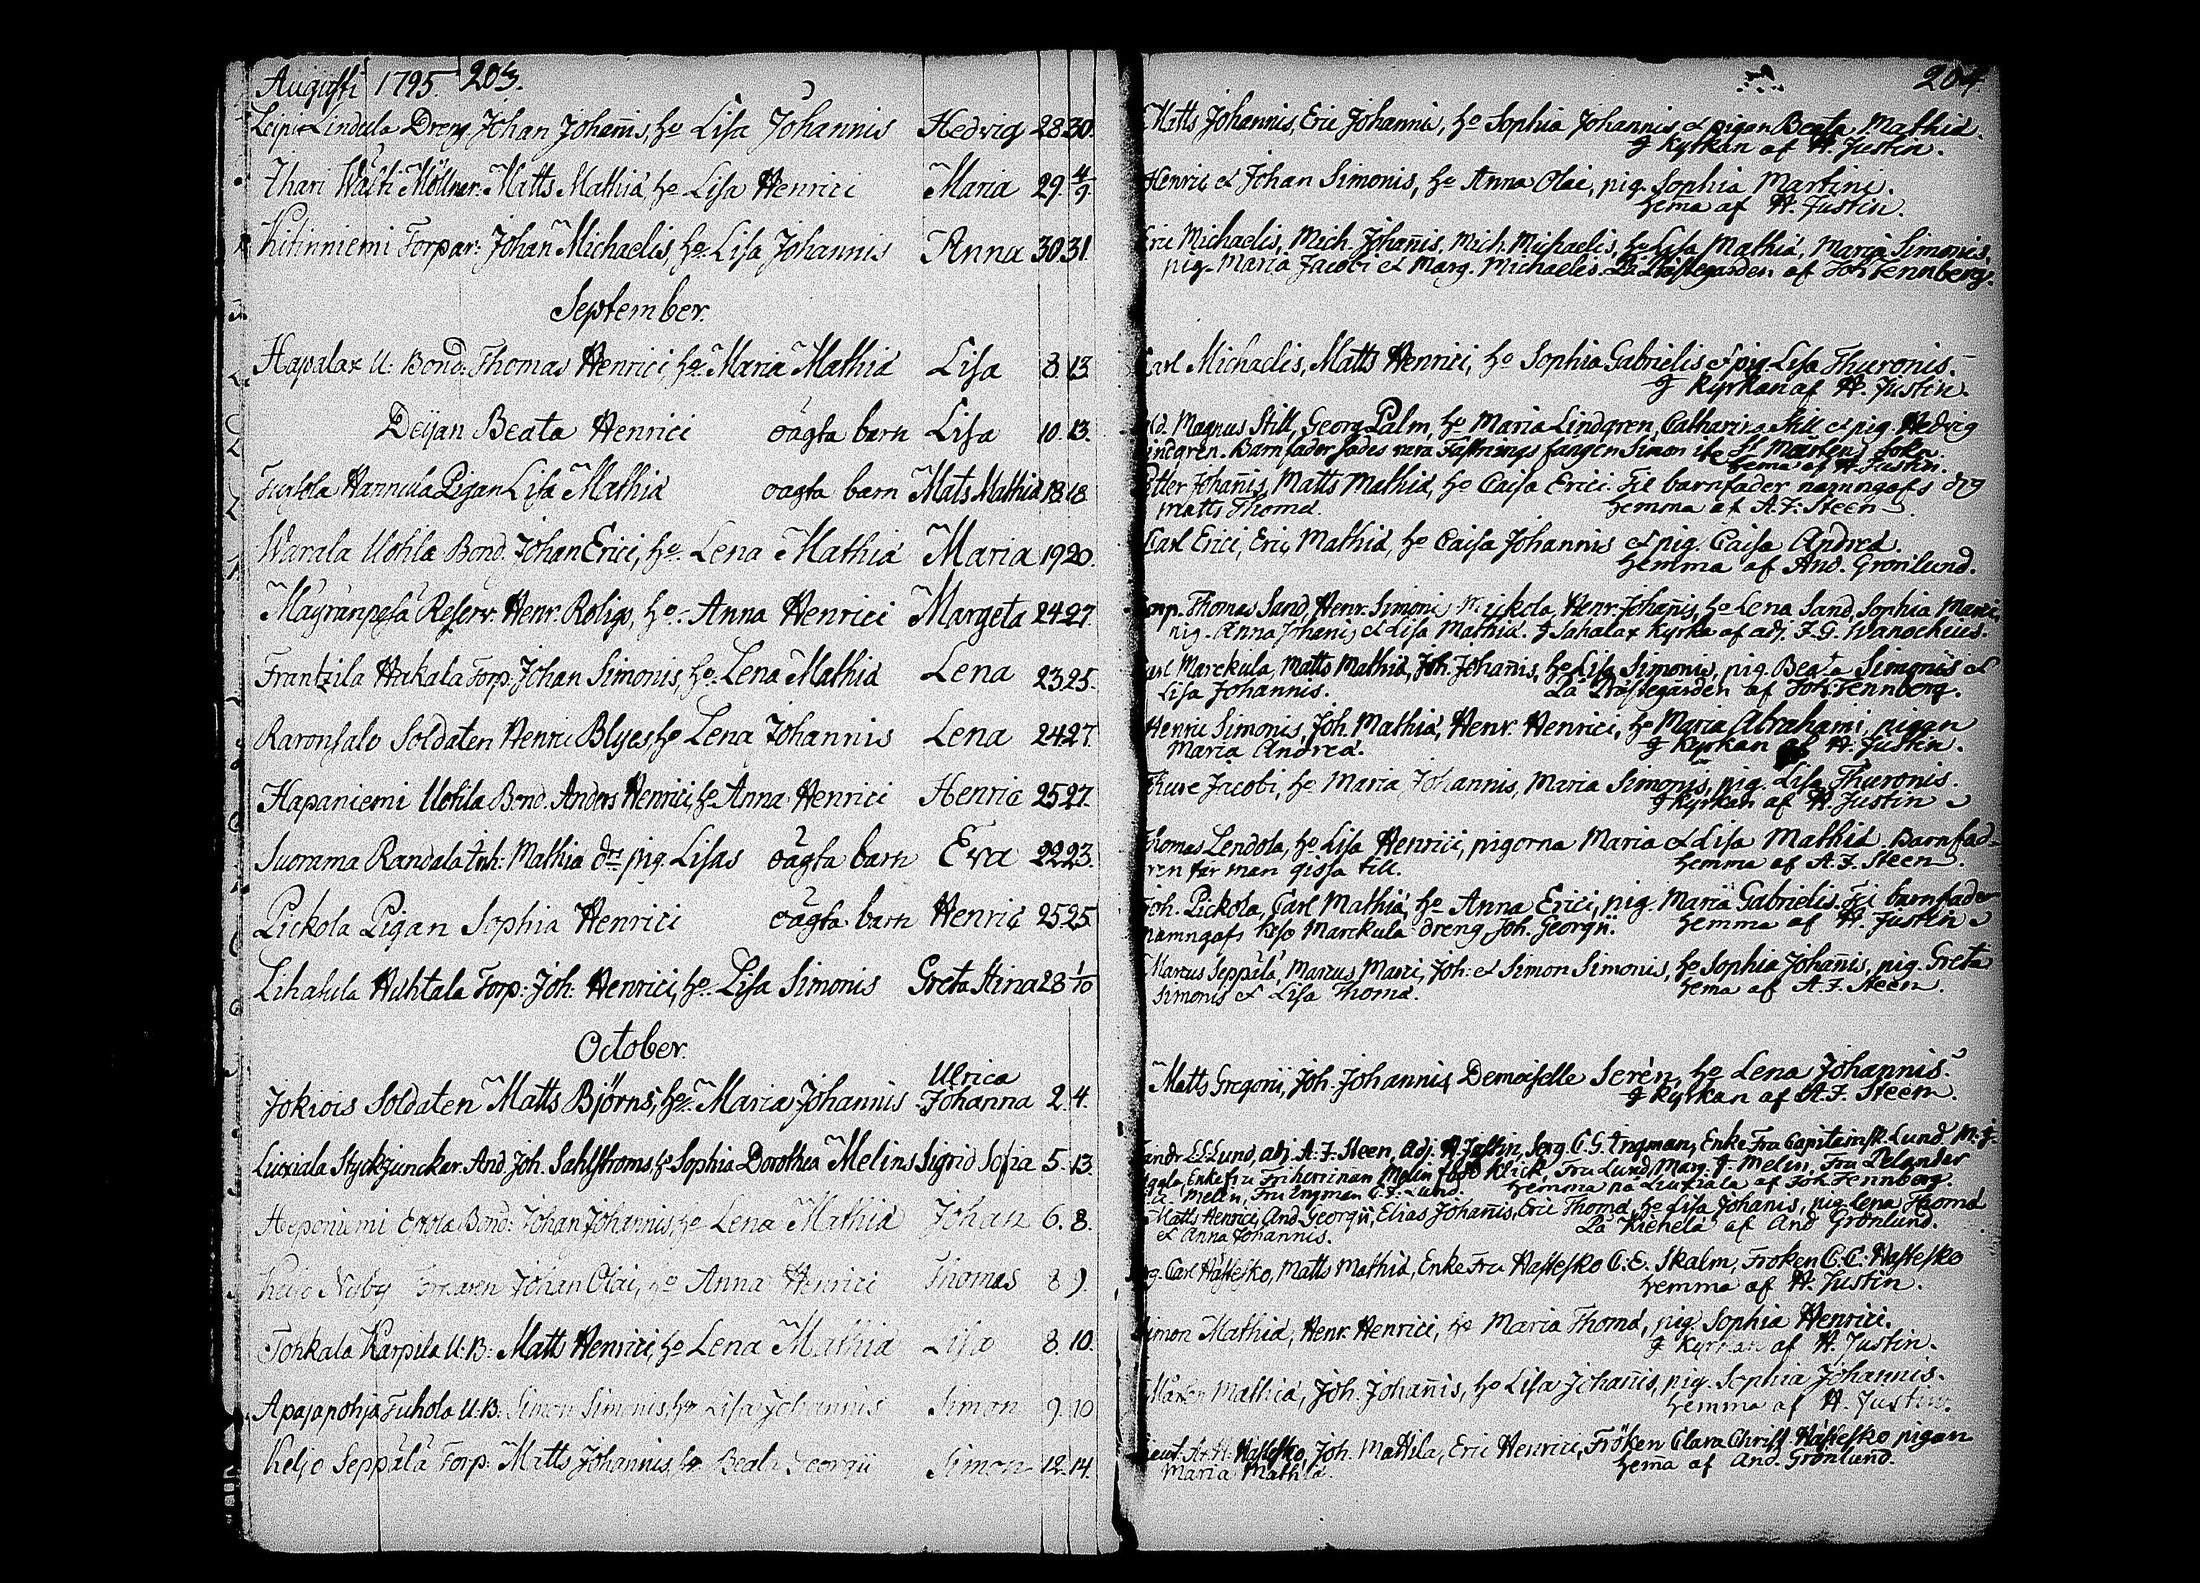 Augusti 1795. 203.
Leipi Lindula Dreng Johan Johañis, ho Lisa Johannis Hedvig 28. 30.
Ihari Wälti Möllnar: Matts Mathiæ, ho Lisa Henrici Maria 29. 4/9.
Kitinniemi Torpar: Johan Michaelis, ho. Lisa Johannis Anna 30. 31.
September.
Hapalax U: Bond: Thomas Henrici, ho: Maria Mathiæ Lisa 8. 13.
Deijan Beata Henrici oägta barn Lisa 10. 13.
Hannula Pigan Lisa Mathiæ oägta barn Mats Mathiæ 18. 18.
Warala Uotila Bond: Johan Erici, ho. Lena Mathiæ Maria 19. 20.
Reserv: Henr. Roligs, ho. Anna Henrici Margeta 24. 27.
Frantzila Hakala Torp: Johan Simonis, ho: Lena Mathiæ Lena 23. 25.
Raronsalo Soldaten Henric Blyes ho Lena Johannis Lena 24. 27.
Hapaniemi Uotila Bond. Anders Henrici, ho Anna Henrici Henric 25. 27.
Suorama Randala Inh: Mathiæ dr pig. Lisas oägta barn Eva 22. 23.
Pickola Pigan Sophia Henrici oägta barn Henric 25. 25.
Lihasula Huhtala Torp: Joh: Henrici, ho. Lisa Simonis Greta Stina 28 1/10
October.
Jokiois Soldaten Matts Björns, ho: Maria Johannis Ulrica Johanna 2. 4.
Liuxiala Styckjunckar. And. Joh. Sahlstroms, ho Sophia Dorothea Melins Sigrid Sofia 5. 13.
Heponiemi Erola Bond: Johan Johannis, ho Lena Mathiæ Johan 6. 8.
Keljo Nisby Torparen Johan Olai, ho Anna Henrici Thomas 8 9.
Tohkala Karpila U: B: Matts Henrici, ho Lena Mathiæ Lisa 8. 10.
Apajapohja Tuhola U: B: Simon Simonis, ho Lisa Johannis Simon 9. 10
Keljo Seppälä Torp: Matts Johannis, ho. Beata Georgii Simon 12. 14.
204.
Matts Johannis, Eric Johannis, ho Sophia Johannis, et pigan Beata Mathiæ.
J kyrkan af H. Justin.
Henric et Johan Simonis, ho Anna Olai, pig. Sophia Martini.
hem̃a af H. Justin.
Eric Michaelis, Mich. Johañis, Mich. Michaelis, ho Lisa Mathiæ, Maria Simonis,
pig. Maria Jacobi et Marg. Michaelis. På Prästegården af Joh Tennberg.
Carl Michaelis, Matts Henrici, ho Sophia Gabrielis et pig. Lisa Thuronis.
J kyrkan af H. Justin.
Magnus Still, Georg Palm, ho Maria Lindgren, Catharina Still et pig. Hedvig
Lindgren. Barnfader sades vara Fästnings fangen Simon ifr St Mårtens Sokn.
hem̃a af H. Justin.
Petter Johañis, Matts Mathiæ, ho Caisa Erici. Til barnfader namngafs drg
Matts Thomæ. hemma af A. F. Steen
Carl Erici, Eric Mathiæ, ho Caisa Johannis et pig. Caisa Andreæ.
hemma af And. Grönlund.
Corp. Thomas Sand, Henr. Simonis Mickola, Henr. Johañis, ho Lena Sand, Sophia Marci,
pig. Anna Johanis et Lisa Mathiæ. J Sahalax Kyrka af adj. F. G. Wanochius.
Carl Marckula, Matts Mathiæ, Joh. Johañis, ho Lisa Simonis, pig. Beata Simonis et
Lisa Johannis. På Prästegården af Joh: Tennberg.
Henric Simonis, Joh. Mathiæ, Henr. Henrici, ho Maria Abrahami, pigan
Maria Andreæ. J kyrkan af H. Justin.
Thure Jacobi, ho Maria Johannis, Maria Simonis, pig. Lisa Thuronis.
J kyrkan af H. Justin
Thomas Lendola, ho Lisa Henrici, pigorna Maria et Lisa Mathiæ. Barnfad-
ren får man gissa till. hemma af A. F. Steen.
Joh. Pickola, Carl Mathiæ, ho Anna Erici, pig. Maria Gabrielis. Til barnfader
namngafs Marckula dreng Joh. Georgii. hemma af H. Justin
Marcus Seppälä, Marcus Marci, Joh. et Simon Simonis, ho Sophia Johañis, pig. Greta
Simonis et Lisa Thomæ. hem̃a af A. F. Steen.
Matts Gregorii, Joh. Johannis, Demoiselle Serèn, ho Lena Johannis.
J kyrkan af A. F. Steen.
Lund, adj. A. F. Steen, adj. H. Justin, Serg. C. G. Ingman, Enke Fru Capitainsk. Lund
Enkefru Friherrinnan Melin född Klick, Fru Lund, Marg. J. Melin, Fru Pelander
Melin, Fru Ingman C. F. Lund. hemma på Liuxiala af Joh. Tennberg.
Matts Henrici, And. Georgii, Elias Johañis, Eric Thomæ, ho Lisa Johanis, pig. Lena Thomæ
et Anna Johannis. På Riehela af And Grönlund.
Carl Hästesko, Matts Mathiæ, Enke Fru Hästesko C. E. Skalm, Fröken C. C. Hästesko
hemma af H. Justin.
Simon Mathiæ, Henr. Henrici, ho Maria Thomæ, pig Sophia Henrici.
J kyrkan af H. Justin.
Mathiæ, Joh. Johañis, ho Lisa Johañis, pig. Sophia Johannis.
hemma af H. Justin.
Lieut. Hästesko, Joh. Mattila, Eric Henrici, Fröken Clara Christ. Hästesko pigan
Maria Mathiæ. hem̃a af And. Grönlund.